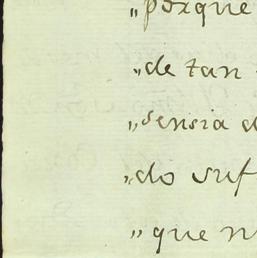 „porque
„de tan
„sensia d
„do suf
„que n